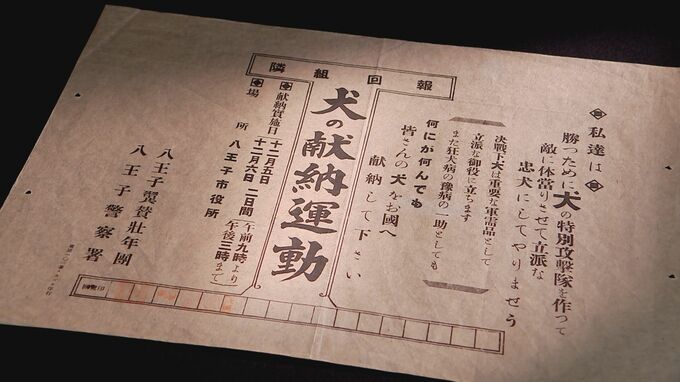 隣組回報
私達は
勝つために犬の特別攻撃隊を作つて
敵に体當りさせて立派な
忠犬にしてやりませう
決戰下犬は重要な軍需品として
立派な御役に立ちます
また狂犬病の豫病の一助としても
何にが何んでも
皆さんの犬をお國へ
献納して下さい
犬の献納運動
献納實施日 十二月五日 十二月六日 二日間 午前九時より 午後三時まで
場所 八王子市役所
八王子翼賛壯年團
八王子警察署